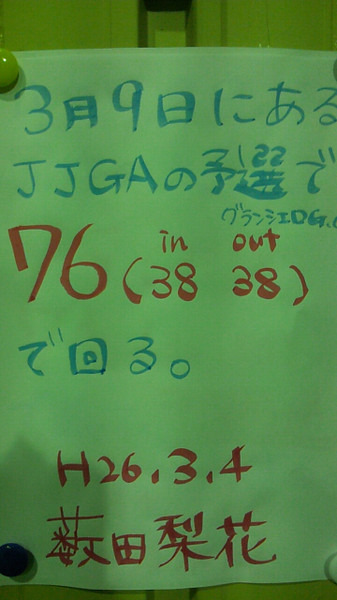 3月9日にある
JJGAの予選で
グランシエロG.
in out
76(38 38)
で回る。
H26.3.4
薮田梨花